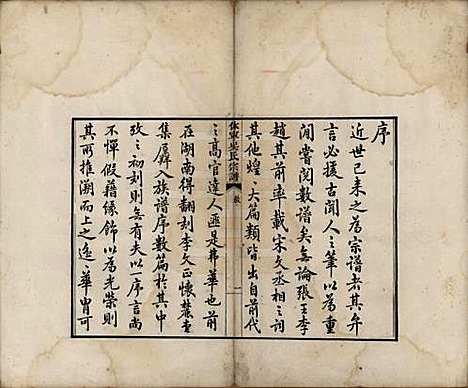 序
近世已来之为宗譜者其弁
言必援古聞人之筆以為重
間嘗閱数譜矣無論張王李
趙其前率載宋文丞相之詞
其他煌〻大篇類皆出自前代
休寧吳氏宗譜
叙
一
之高官達人匪是弗華也前
在湖南得翻刻李文正懷麓堂
集羼入族譜序数篇於其中
攷之初刻則無有夫以一序言尚
不憚假藉緣飾以為光榮則
其所推溯而上之遠〻華胄可